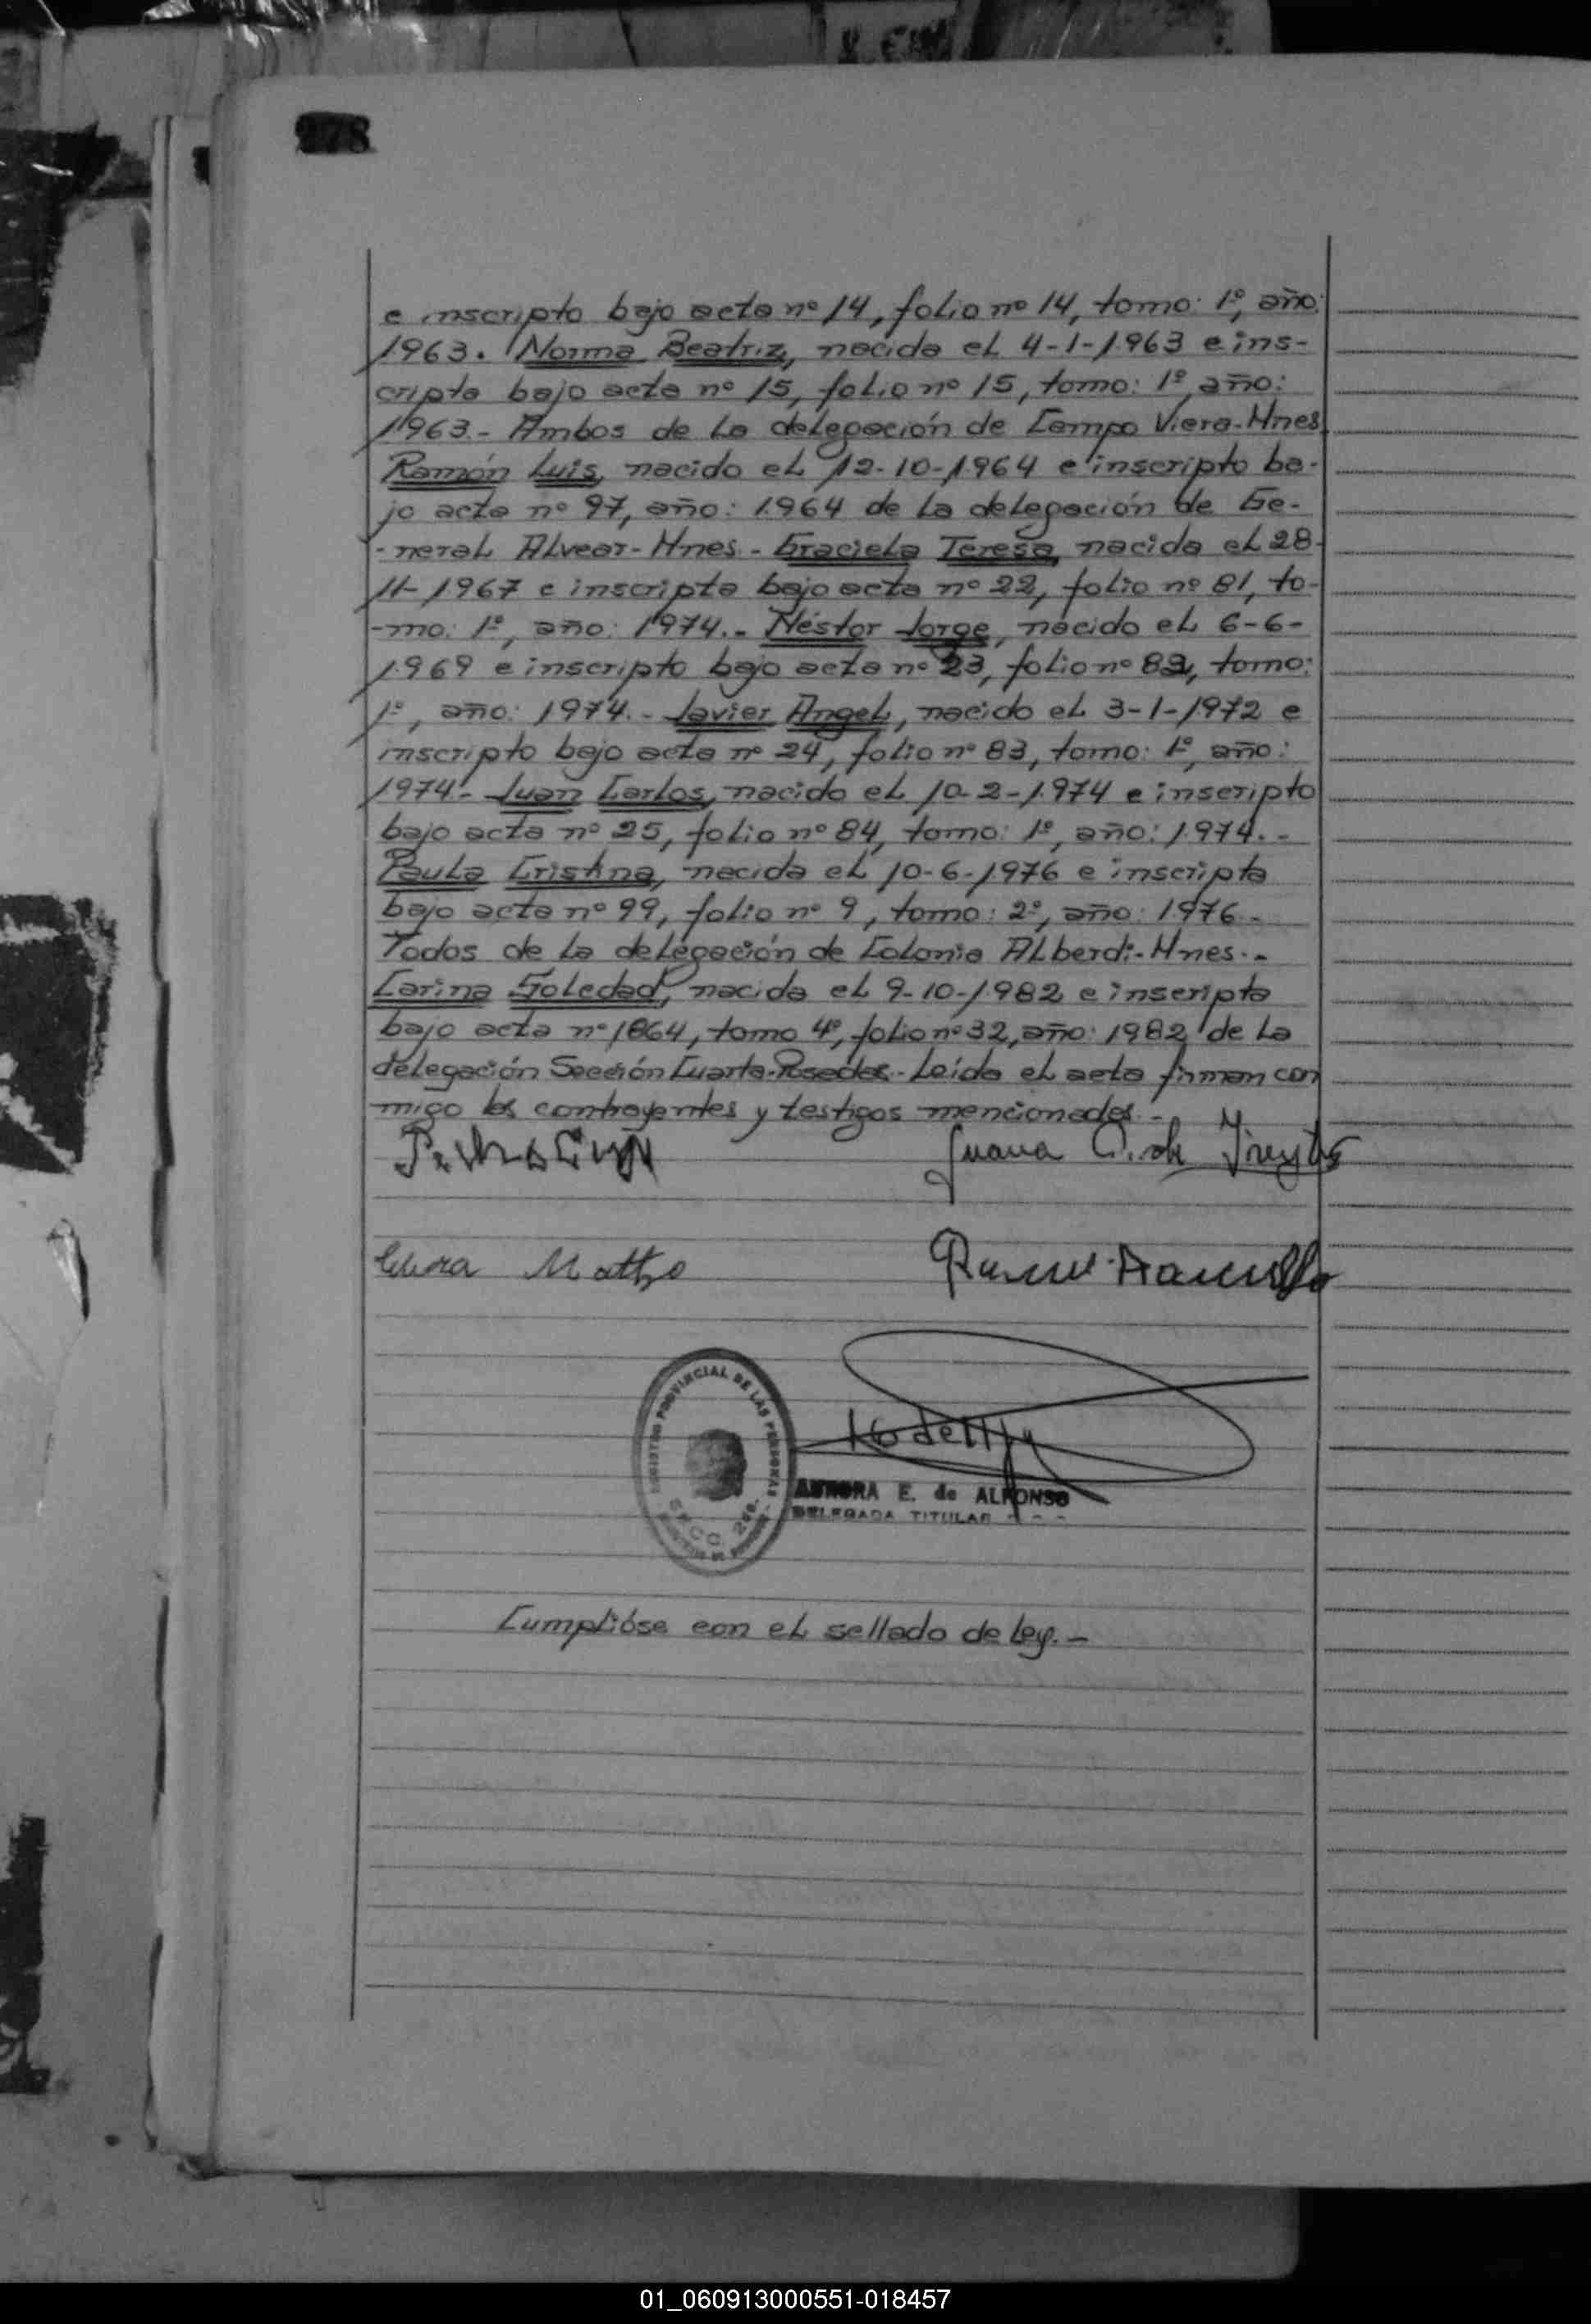 278
e inscripto bajo acta nº 14, folio nº 14, tomo: 1º, año:
1963. Norma Beatriz, nacida el 4-1-1963 e ins-
cripta bajo acta nº 15, folio nº 15, tomo: 1º, año:
1963.- Ambos de la delegación de Campo Viera-Mnes
Ramón Luis, nacido el 12-10-1964 e inscripto ba-
jo acta nº 97, año: 1964 de la delegación de Ge-
-neral Alvear-Mnes.- Graciela Teresa, nacida el 28-
11-1967 e inscripta bajo acta nº 22, folio nº 81, to-
-mo: 1º, año: 1974.- Néstor Jorge, nacido el 6-6-
1969 e inscripto bajo acta nº 23, folio nº 82, tomo:
1º, año: 1974.- Javier Angel, nacido el 3-1-1972 e
inscripto bajo acta nº 24, folio nº 83, tomo: 1º, año:
1974.- Juan Carlos, nacido el 10-2-1974 e inscripto
bajo acta nº 25, folio nº 84, tomo: 1º, año: 1974.-
Paula Cristina, nacida el 10-6-1976 e inscripta
bajo acta nº 99, folio nº 9, tomo: 2º, año: 1976.-
Todos de la delegación de Colonia Alberdi-Mnes.-
Carina Soledad, nacida el 9-10-1982 e inscripta
bajo acta nº 1864, tomo 4º, folio nº 32, año: 1982 de la
delegación Sección Cuarta-Posadas.- Leída el acta firman con
migo los contrayentes y testigos mencionados.-
Juana de
REGISTRO PROVINCIAL DE LAS PERSONAS
SECC. 2da.
AURORA E. de ALFONSO
DELEGADA TITULAR
Cumplióse con el sellado de ley.-
01_060913000551-018457